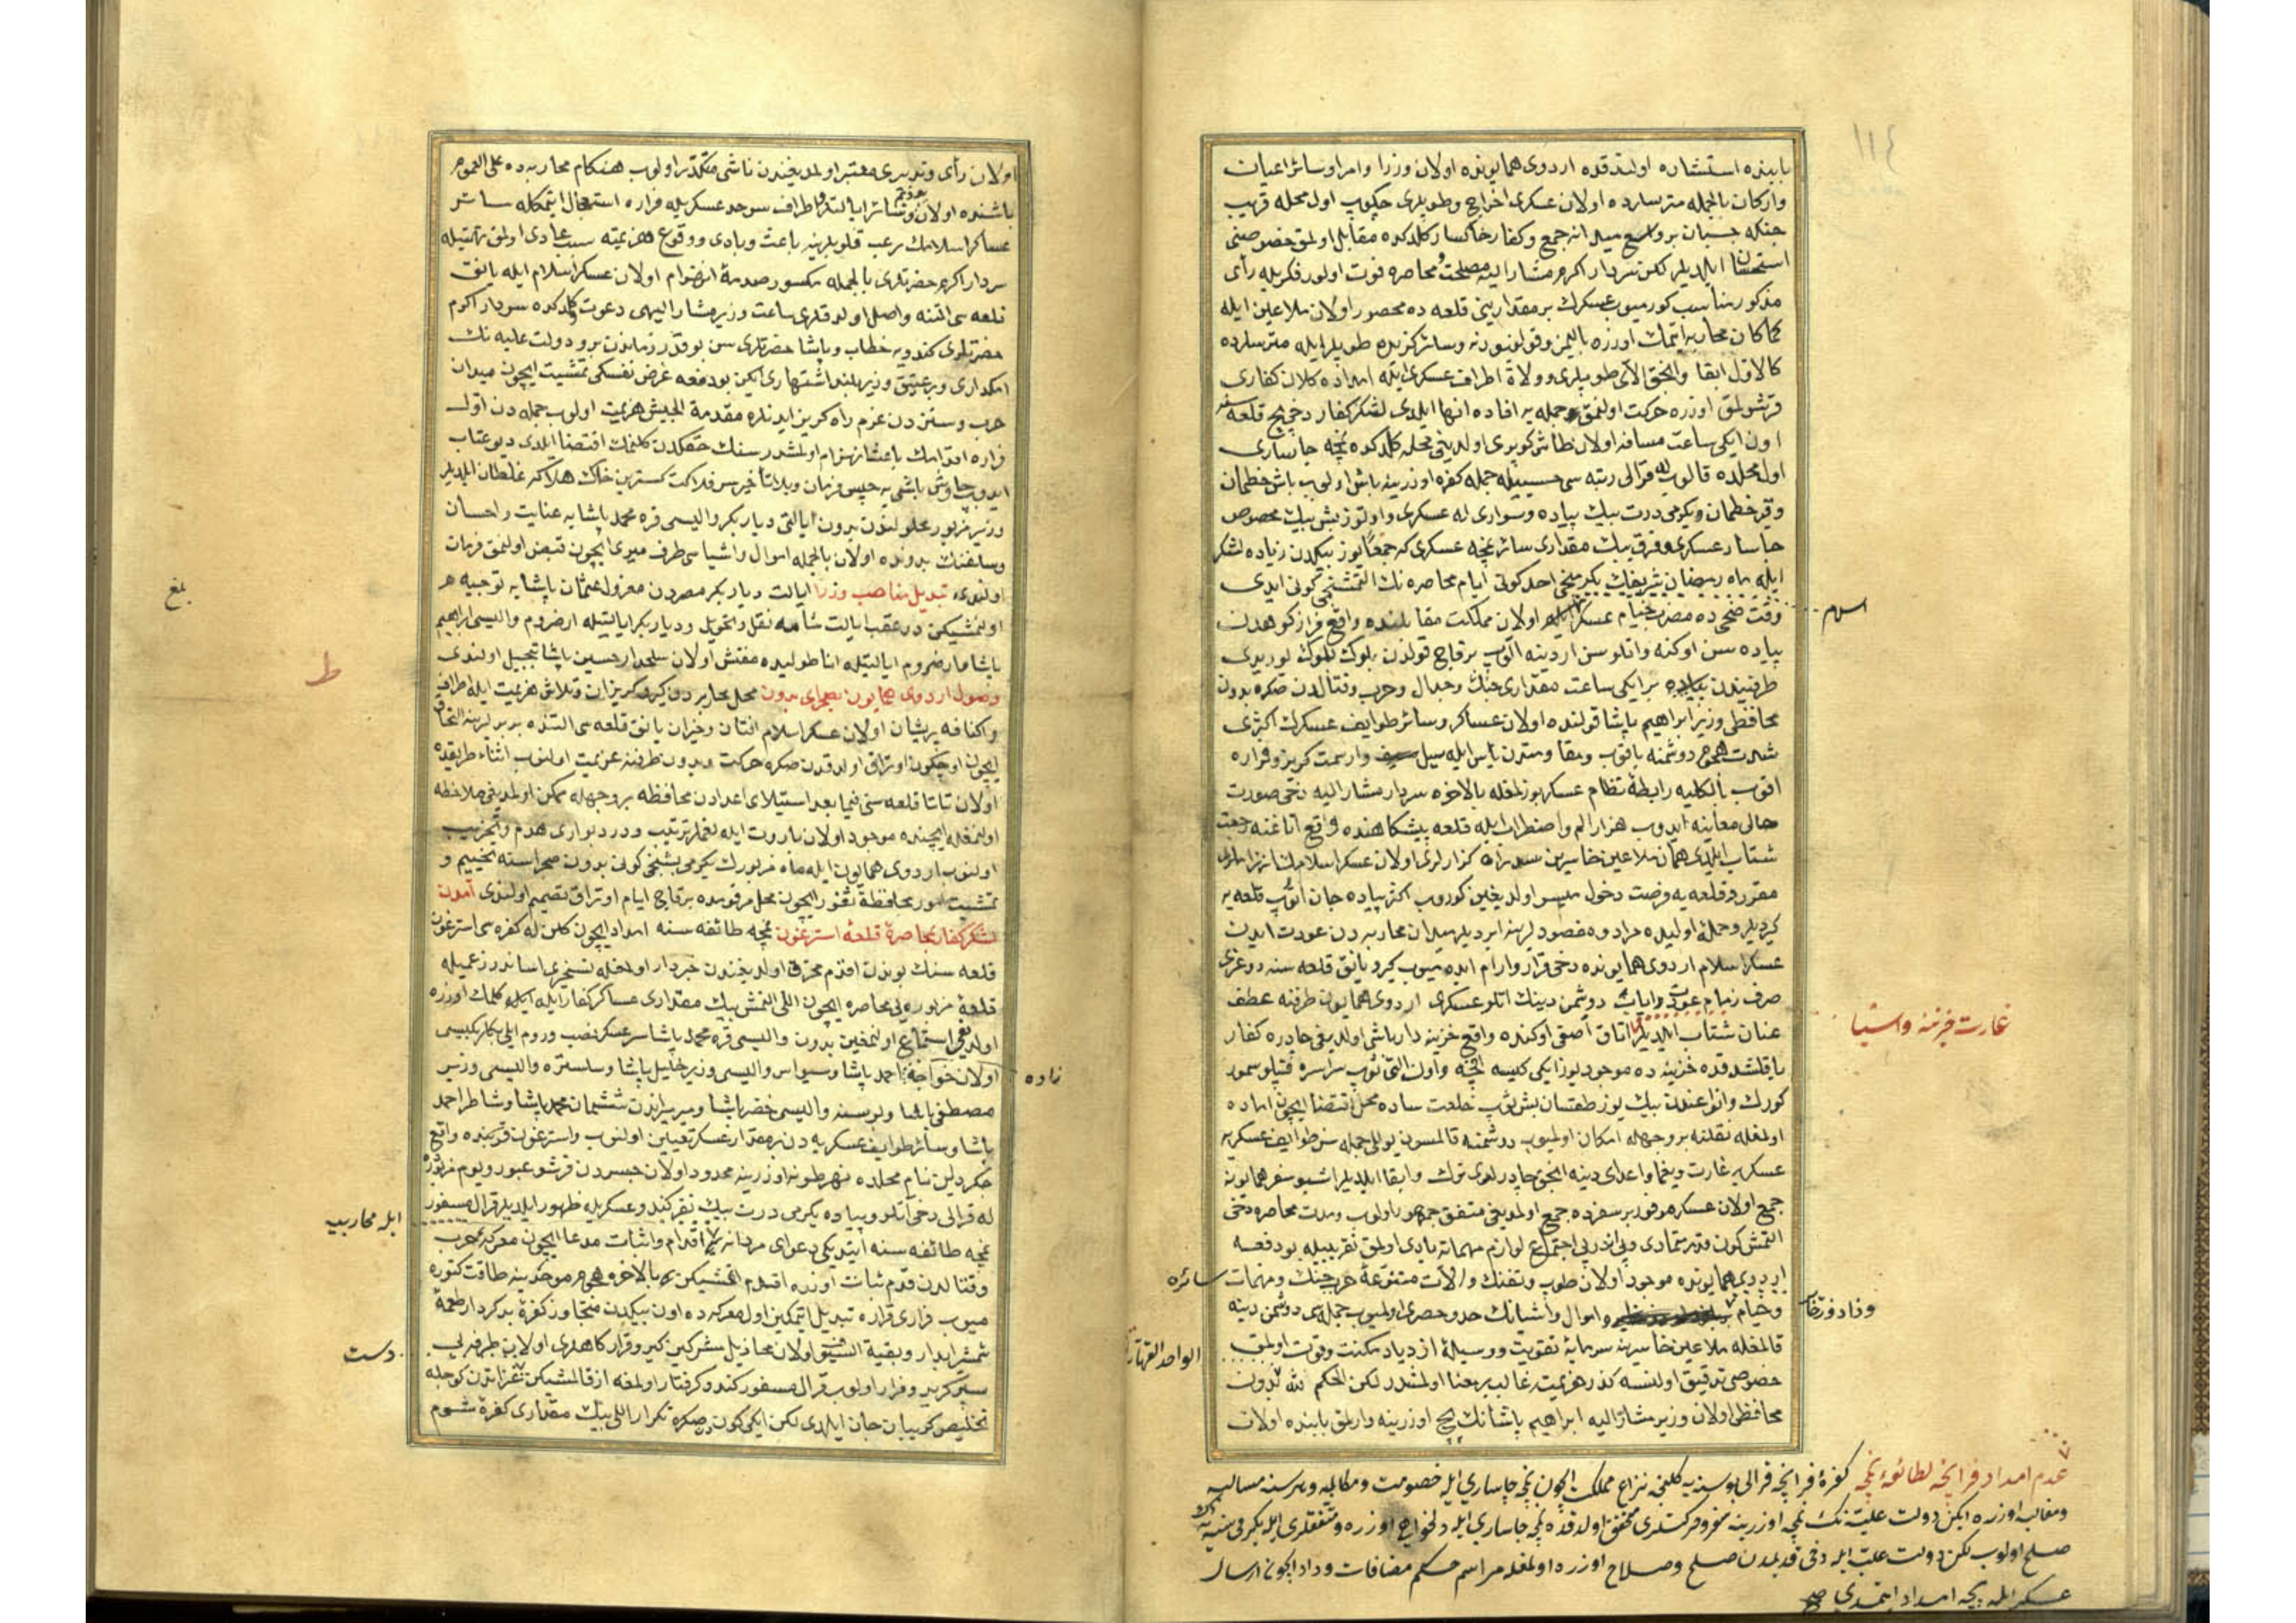 ١١٤
بابنده استشاره اولندقده اردوی همایونده اولان وزرا وامرا وسائر اعیان
وارکان بالجمله مترسلرده اولان عسکری اخراج وطوپلری چکوب اول محله قریب
جنکه چسبان بر واسع میدانه جمع وکفار خاکسار کلدکده مقابل اولمق خصوصنی
استحسان ایلدیلر لکن سردار اکرم مشار الیه مصلحت محاصره فوت اولور فکریله رأی
مذکور مناسب کورمیوب عسکرك بر مقدارینی قلعه ده محصور اولان ملاعین ایله
کماکان محاربه ایتمك اوزره بالیمز وقولونبورنه وسائر کزیده طوپلر ایله مترسلرده
کالاول ابقا وانجق الای طوپلری وولاة اطراف عسکری ایله امداده کلان کفاری
قرشولمق اوزره حرکت اولنمق جمله یه افاده انها ایلدی لشکر کفار دخی بچ قلعه سنه
اون ایکی ساعت مسافه اولان طاش کوپری اولدیغی محله کلدکده نمچه چاساری
اول محلده قالوب له قرالی رتبه سی حسبیله جمله کفره اوزرینه باش اولوب باش خطمان
وقیر خطمان ویکرمی درت بیك پیاده وسواری له عسکری واوتوز بش بیك مخصوص
چاسار عسکری وقرق بیك مقداری سائر نمچه عسکری که جمعا یوز بیکدن زیاده لشکر
ایله ماه رمضان شریفك یکرمنجی احد کونی ایام محاصره نك التمشنجی کونی ایدی
وقت ضحی ده مضرب خیام عسکر اسلام اولان مملکت مقابلنده واقع فراز کوهدن
پیاده سن اوکنه واتلوسن اردینه الوب برقاج قولدن بلوك بلوك لوریدی
طرفیندن برایکی ساعت مقداری جنك وجدال وحرب وقتالدن صکره بدون
محافظی وزیر ابراهیم پاشا قولنده اولان عساکر وسائر طوایف عسکرك اکثری
شدت هجوم دوشمنه باقوب ومقاومتدن یاس ایله سبیل وارسمت کریز وفراره
اقوب بالکلیه رابطهٔ نظام عسکر بوزلمغله بالاخره سردار مشار الیه دخی صورت
حالی معاینه ایدوب هزار الم واضطراب ایله قلعه پیشکاهنده واقع اتاغنه رجعت
شتاب ایلدی همان ملاعین خاسرین سد راه کذارلری اولان عسکر اسلامك انهزاملری
مقرر وقلعه یه فرصت دخول میسر اولدیغین کوروب اکثر پیاده جان اتوب قلعه یه
کیردیلر وحملهٔ اولیده مراد ومقصودلرینه ایردیلر میدان محاربه دن عودت ایدن
عسکر اسلام اردوی همایونده دخی قرار وارام ایده میوب کیرو یانق قلعه سنه دوغری
صرف زمام عودت وایاب دوشمن دینك اتلو عسکری اردوی همایون طرفنه عطف
عنان شتاب ایلدیلر اتاق آصفی اوکنده واقع خزینه دار باشی اولدیغی چادره کفار
یاقلشدقده خزینه ده موجود یوز ایکی کیسه اقچه واون التی توپ سراسره قپلو سمور
کورك وانواعندن بیك یوز طقسان بش توپ خلعت ساده محل اقتضا ایچون اماده
اولمغله نقلنه بروجهله امکان اولمیوب دوشمنه قالمسون بوللو جمله سن طوایف عسکریه
عسکریه غارت ویغما واعدای دینه انجق چادرلری ترك وابقا ایلدیلر اشبو سفر همایونه
جمع اولان عسکر موفور بر سفرده جمع اولمدیغی متفق جمهور اولوب ومدت محاصره دخی
التمش کون قدر متمادی وپی اندر پی اجتماع لوازم مهماته بادی اولمق تقریبیله بو دفعه
اردوی همایونده موجود اولان طوپ وتفنك والات متنوعهٔ حرب جنك ومهمات
وخیام واموال واشیانك حد وحصری اولمیوب جمله سی دوشمن دینه
قالمغله ملاعین خاسرینه سرمایهٔ تقویت ووسیلهٔ ازدیاد مکنت وقوت اولمق
خصوصی تدقیق اولنسه کذر هزیمت غالب بر معنا اولمشدر لکن الحکم لله بدون
محافظی اولان وزیر مشار الیه ابراهیم پاشانك بچ اوزرینه وارلمق بابنده اولان
اسلام
غارت خزینه واشیا
سائره
الواحد القهار
عدم امداد فرانچه لطائفهٔ نمچه کفرهٔ فرانچه قرالی بوسنه یه کلنجه نزاع مملکت ایچون نمچه چاساری ایله خصومت
ومغالبه اوزره ایکن دولت علیه نك نمچه اوزرینه سفر وحرکتلری محقق اولدقده نمچه چاساری ایله دلخواهی اوزره ومتفقلری ایله یکرمی سنه یه
صلح اولوب لکن دولت علیه ایله دخی قدیمدن صلح وصلاح اوزره اولمغله مراسم حکم مضافات وداد ایچون ارسال
عسکر ایله بچه امداد ایتمدی صح
اولان رأی وتدبیری معتبر اولمدیغندن ناشی متکدر اولوب هنکام محاربه ده علی العموم
باشنده اولان وسائر ایالتلو اطراف سرحد عسکریله فراره استعجال ایتمکله سائر
عساکر اسلامك رعب قلوبلرینه باعث وبادی ووقوع هزیمته سبب عادی اولمق تهمتیله
سردار اکرم حضرتلری بالجمله مکسور صدمهٔ انهزام اولان عسکر اسلام ایله یانق
قلعه سی التنه واصل اولدقلری ساعت وزیر مشار الیهی دعوت وکلدکده سردار اکرم
حضرتلری کندویه خطاب وپاشا حضرتلری سن بوقدر زماندن برو دولت علیه نك
امکداری وبر عتیق وزیر بلند اشتهاری ایکن بو دفعه غرض نفسکی تمشیت ایچون میدان
حرب وستیزدن عزم راه کریز ایدنلره مقدمة الجیش هزیمت اولوب جمله دن اول
فراره اقدامك باعث انهزام اولمشدر سنك حقکدن کلنمك اقتضا ایلدی دیو عتاب
ایدوب چاوش باشی یه حبس فرمان وبلا تأخیر سر فلاکت کسترین خاك هلاکه غلطان ایلدیلر
وزیر مزبور محلولندن بدون ایالتی دیاربکر والیسی قره محمد پاشایه عنایت واحسان
وسلفنك بدونده اولان بالجمله اموال واشیاسی طرف میری ایچون قبض اولنمق فرمان
اولندی تبدیل مناصب وزرا ایالت دیاربکر مصردن معزول عثمان پاشایه توجیه هر
اولنمشیکن در عقب ایالت شامه نقل وتحویل ودیاربکر ایالتیله ارضروم والیسی ابراهیم
پاشا وارضروم ایالتیله اناطولیده مفتش اولان سلحدار حسین پاشا تبجیل اولندی
وصول اردوی همایون بصحرای بدون محل محاربه دن کیرو کریزان وتلاش هزیمت ایله اطراف
واکنافه پریشان اولان عسکر اسلام افتان وخیزان یانق قلعه سی التنده بربرلرینه التحاق
ایچون اوچ کون اوتراق اولدقدن صکره حرکت وبدون طرفنه عزیمت اولنوب اثناء طریقده
اولان تاتا قلعه سنی فیما بعد استیلای اعدادن محافظه بروجهله ممکن اولمدیغی ملاحظه
اولنمغله ایچنده موجود اولان باروت ایله لغملر ترتیب ودر دیواری هدم وتخریب
اولنوب اردوی همایون ایله ماه مزبورك یکرمی بشنجی کونی بدون صحراسنه تخییم و
تمشیت امور محافظهٔ ثغور ایچون محل مرقومده برقاج ایام اوتراق تصمیم اولندی آمدن
لشکر کفار بمحاصرهٔ قلعهٔ استرغون نمچه طائفه سنه امداد ایچون کلن له کفره سی استرغون
قلعه سنك بوندن اقدم محترق اولدیغندن خبردار اولمغله تسخیری اساندر زعمیله
قلعهٔ مزبوره یی محاصره ایچون اللی التمش بیك مقداری عساکر کفار ایله کلمك اوزره
اولدیغی استماع اولنمغین بدون والیسی قره محمد پاشا سرعسکر نصب وروم ایلی بکلربکیسی
اولان خواجه احمد پاشا وسیواس والیسی وزیر خلیل پاشا وسلستره والیسی وزیر
مصطفی پاشا وبوسنه والیسی خضر پاشا ومیرمیراندن شیشمان محمد پاشا وشاطر احمد
پاشا وسائر طوایف عسکریه دن بر مقدار عسکر تعیین اولنوب واسترغون قربنده واقع
جکردلن نام محلده نهر طونه اوزرینه محدود اولان جسردن قرشو عبور ویوم مزبوره
له قرالی دخی آتلو وپیاده یکرمی درت بیك نفر کندو عسکریله ظهور ایلدیلر قرال مسفور
نمچه طائفه سنه ایتدیکی دعوای مردانه اقدام واثبات مدعا ایچون معرکهٔ حرب
وقتالدن قدم ثبات اوزره اقدام اتمشیکن بالاخره هجوم موحدینه طاقت کتوره
میوب فراری قراره تبدیل ایتمکین اول معرکه ده اون بیکدن متجاوز کفرهٔ بدکردار طعمهٔ
شمشیر آبدار وبقیة السیوف اولان مخاذیل سفرکین کیر وقرارکاهلری اولان طرفه پی
سپر کریز وفرار اولوب قرال مسفور کندو کرفتار اولمغه از قالمشیکن نفراتدن کوجله
تخلیص کریبان جان ایلدی لکن ایکی کون صکره تکرار اللی بیك مقداری کفرهٔ شوم
بلغ
ط
زاده
ایله محاربه
دست